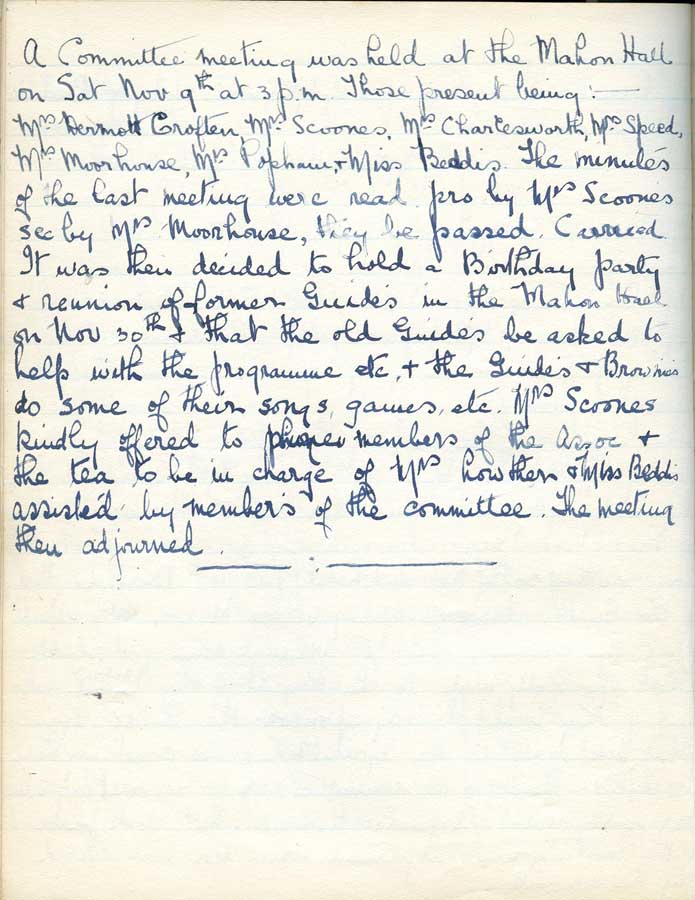 A Committee meeting was held at the Mahon Hall
on Sat Nov 9th at 3 p.m. Those present being :—
Mrs Dermott Crofton, Mrs Scoones, Mrs Charlesworth, Mrs Speed,
Mrs Moorhouse, Mrs Popham, & Miss Beddis. The minutes
of the last meeting were read pro by Mrs Scoones
sec by Mrs Moorhouse, they be passed. Carried
It was then decided to hold a Birthday party
& reunion of former Guides in the Mahon Hall
on Nov 30th & that the old Guides be asked to
help with the programme etc, & the Guides & Brownies
do some of their songs, games, etc. Mrs Scoones
kindly offered to phone members of the Assoc &
the tea to be in charge of Mrs Lowther & Miss Beddis
assisted by members of the committee. The meeting
then adjourned.